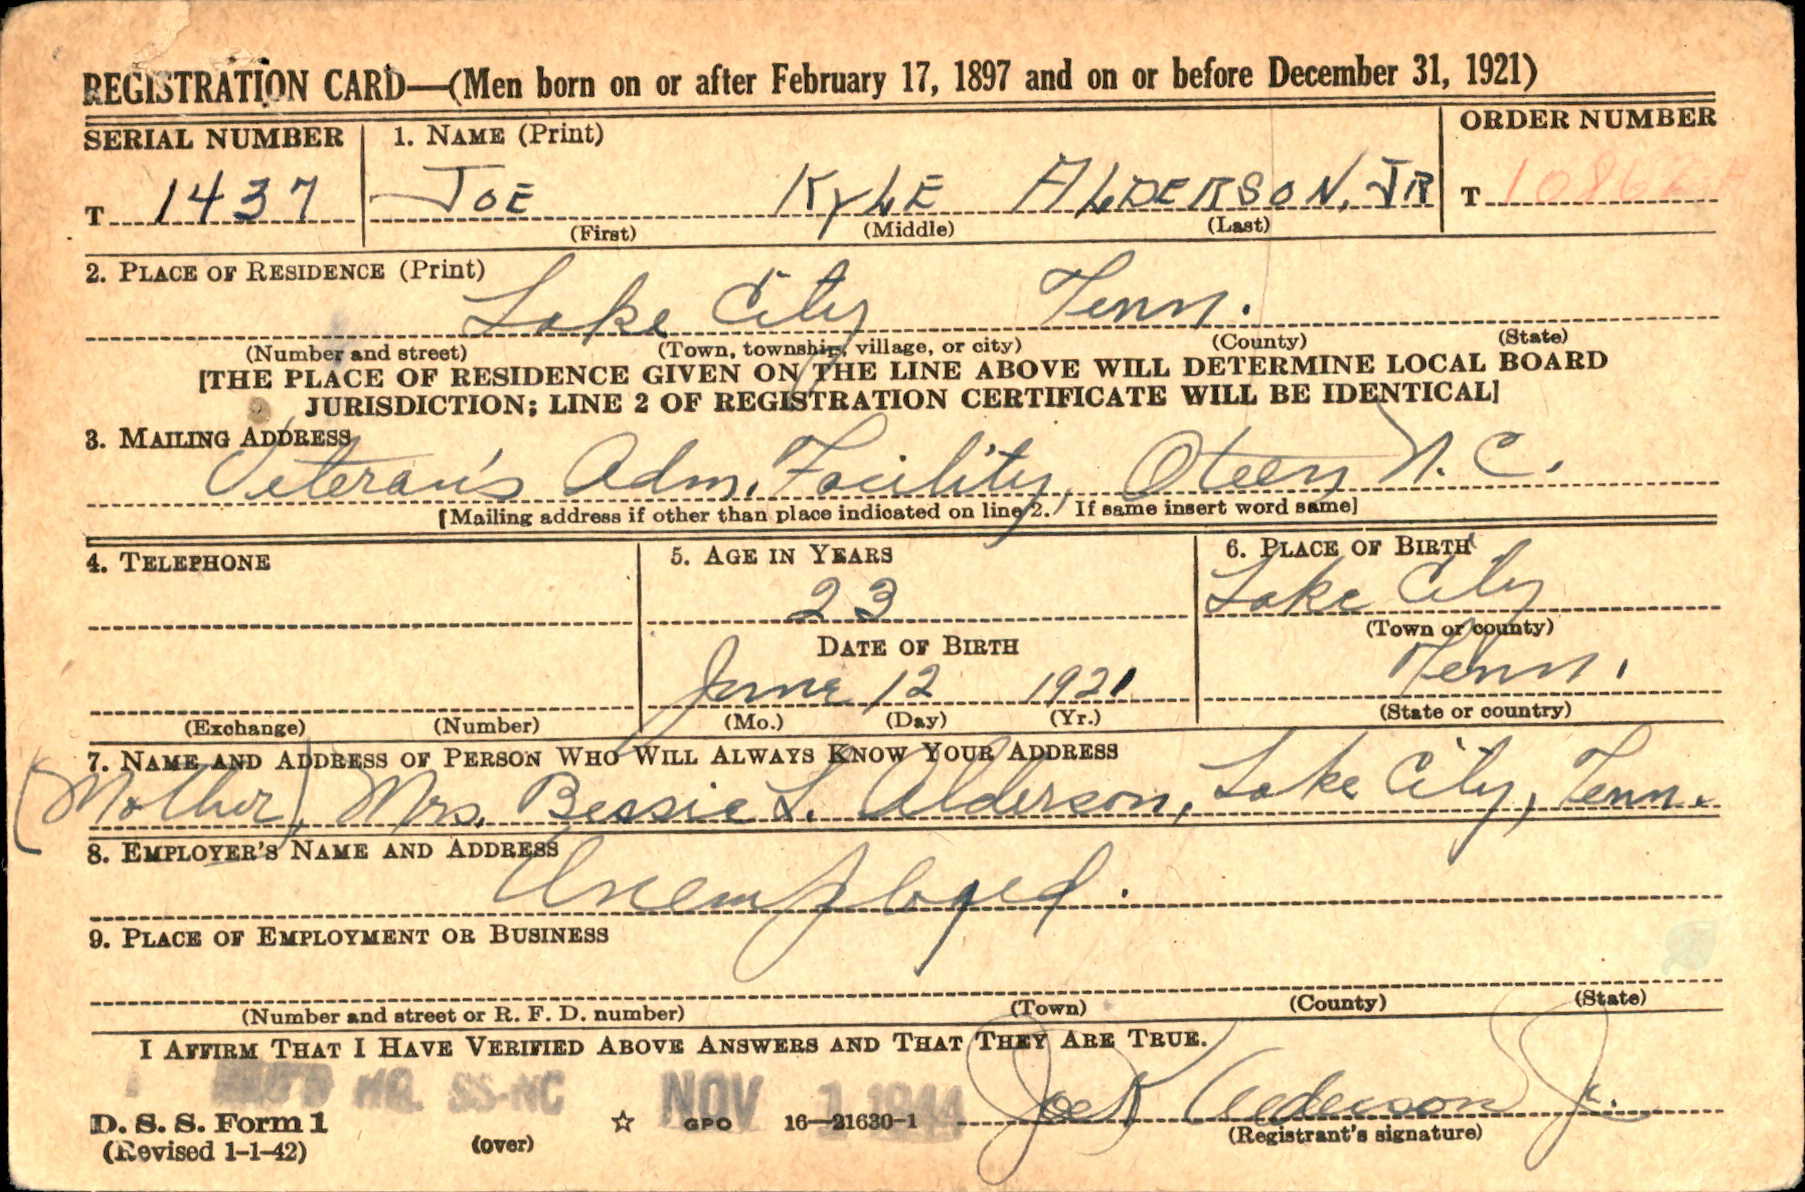 REGISTRATION CARD—(Men born on or after February 17, 1897 and on or before December 31, 1921)
SERIAL NUMBER
1. NAME (Print)
ORDER NUMBER
T 1437
JOE KYLE ALDERSON, JR
T
(First) (Middle) (Last)
2. PLACE OF RESIDENCE (Print)
Lake City Tenn.
(Number and street) (Town, township, village, or city) (County) (State)
[THE PLACE OF RESIDENCE GIVEN ON THE LINE ABOVE WILL DETERMINE LOCAL BOARD
JURISDICTION; LINE 2 OF REGISTRATION CERTIFICATE WILL BE IDENTICAL]
3. MAILING ADDRESS
Veteran's Adm. Facility, Oteen N. C.
[Mailing address if other than place indicated on line 2. If same insert word same]
4. TELEPHONE
5. AGE IN YEARS
6. PLACE OF BIRTH
23
Lake City
(Town or county)
DATE OF BIRTH
June 12 1921
Tenn.
(Exchange) (Number)
(Mo.) (Day) (Yr.)
(State or country)
7. NAME AND ADDRESS OF PERSON WHO WILL ALWAYS KNOW YOUR ADDRESS
(Mother) Mrs. Bessie L. Alderson, Lake City, Tenn.
8. EMPLOYER'S NAME AND ADDRESS
Unemployed.
9. PLACE OF EMPLOYMENT OR BUSINESS
(Number and street or R. F. D. number) (Town) (County) (State)
I AFFIRM THAT I HAVE VERIFIED ABOVE ANSWERS AND THAT THEY ARE TRUE.
HQ. SS-NC NOV 1 1944
Joe K Alderson Jr.
D. S. S. Form 1
(Revised 1-1-42)
(over)
☆ GPO 16—21630-1
(Registrant's signature)